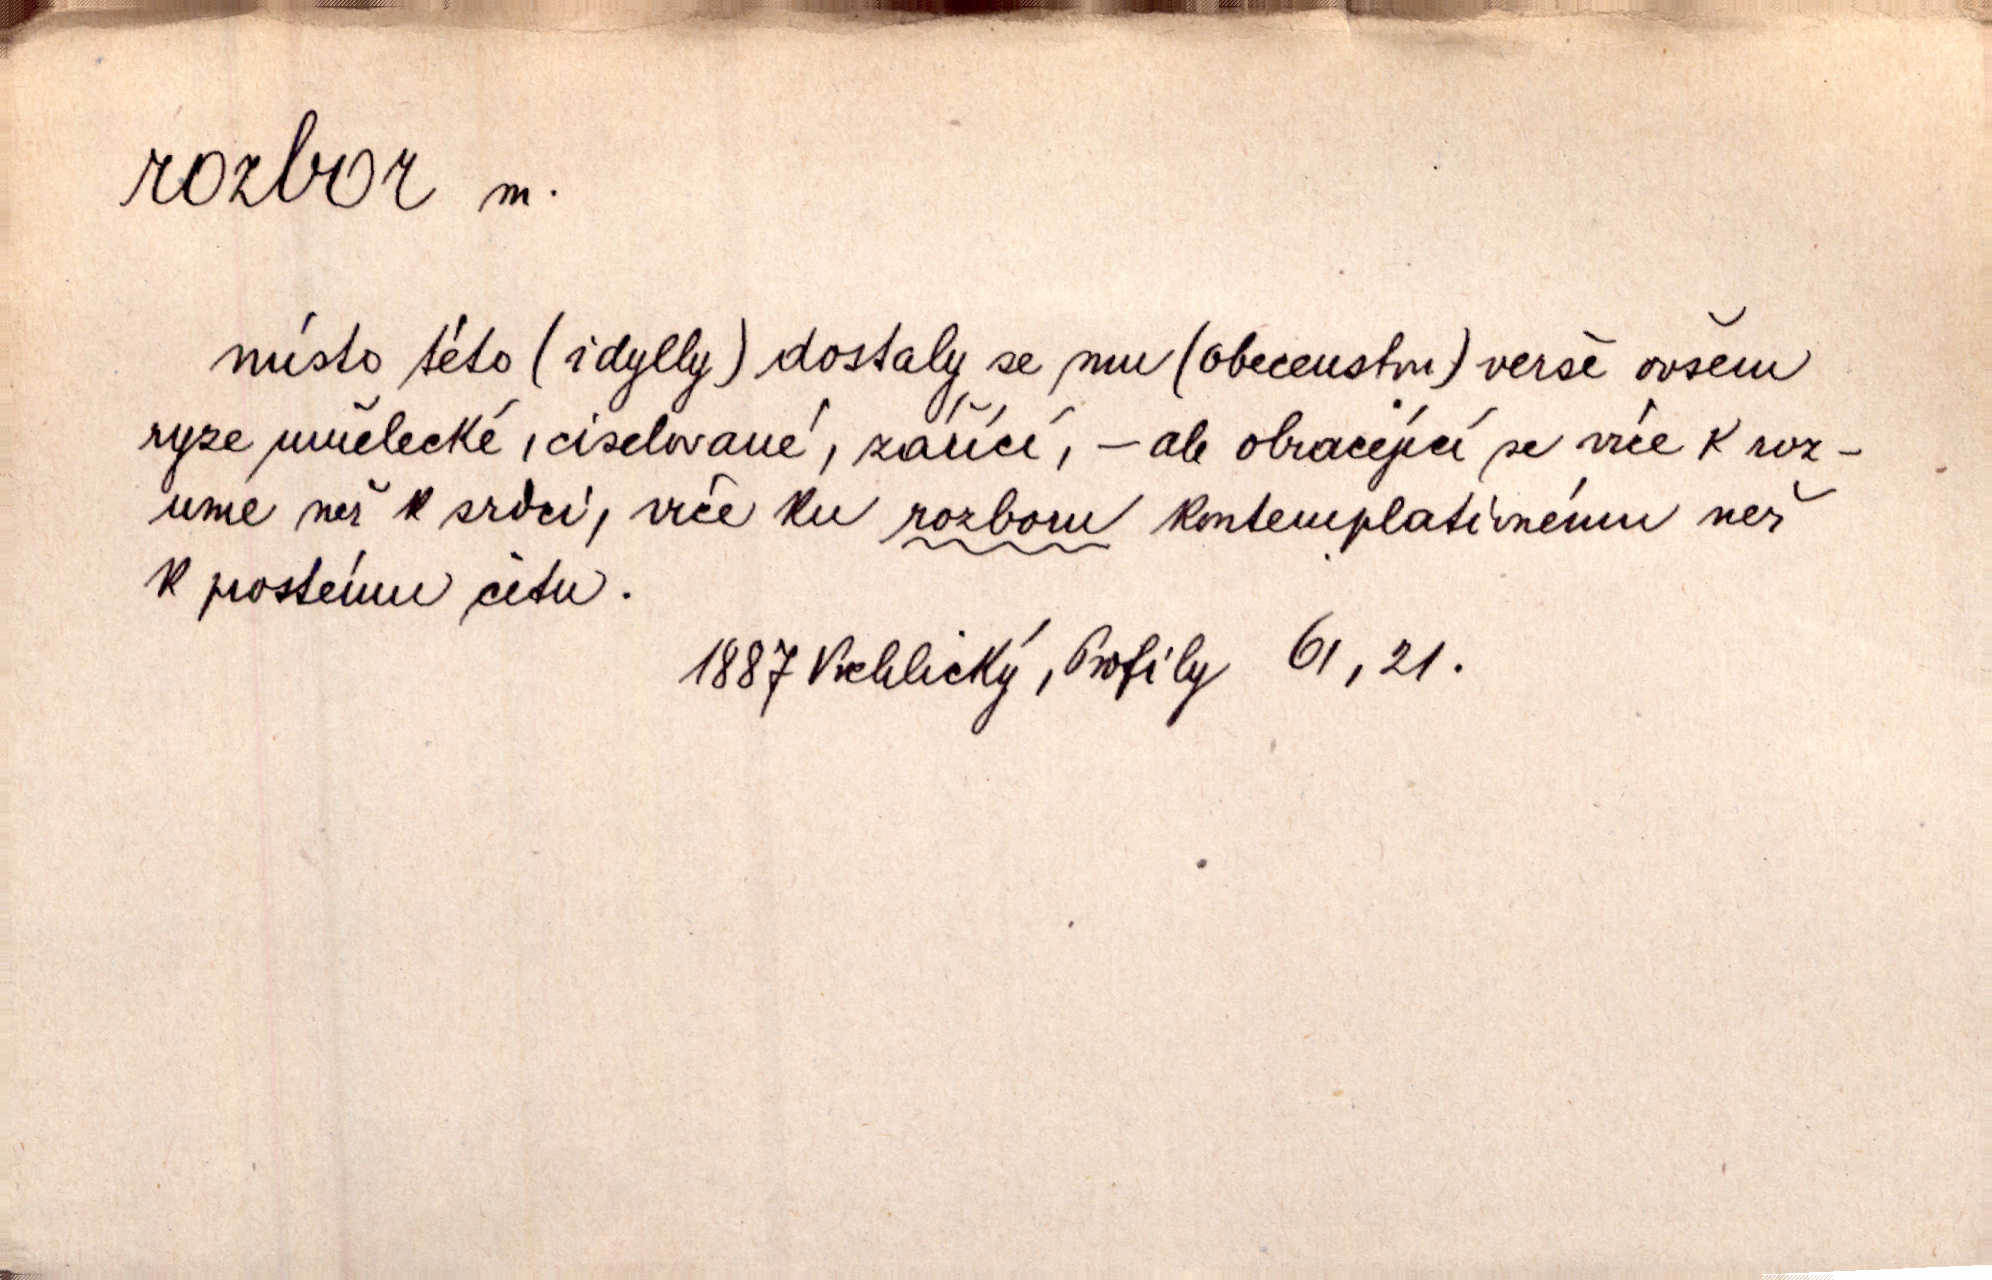 rozbor m.
místo této (idylly) dostaly se mu (obecenstvu) verše ovšem
ryze umělecké, ciselované, zářící, – ale obracející se více k roz-
umě než k srdci, více ku rozboru kontemplativnému než
k prostému citu.
1887 Vrchlický, Profily 61, 21.